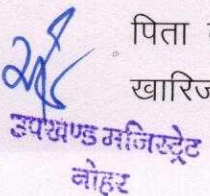 पिता
खारिज
उपखण्ड मजिस्ट्रेट
नोहर